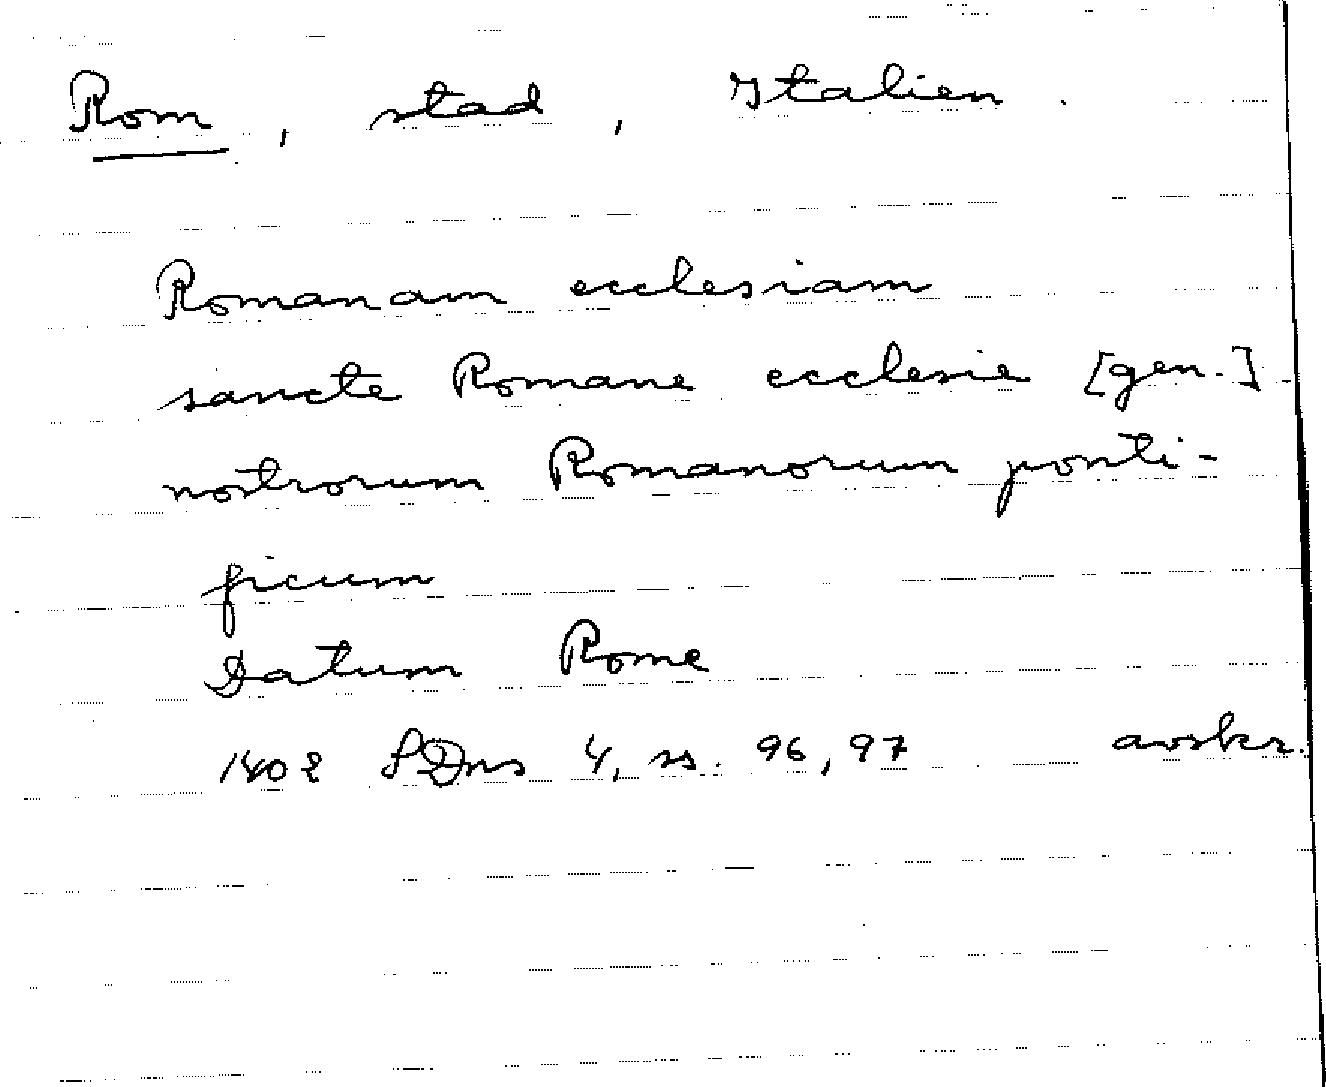 Rom, stad, Italien.
Romanam ecclesiam
sancte Romane ecclesie [gen.]
nostrorum Romanorum ponti-
ficum
Datum Rome
1402 SDns 4, ss. 96, 97 avskr.